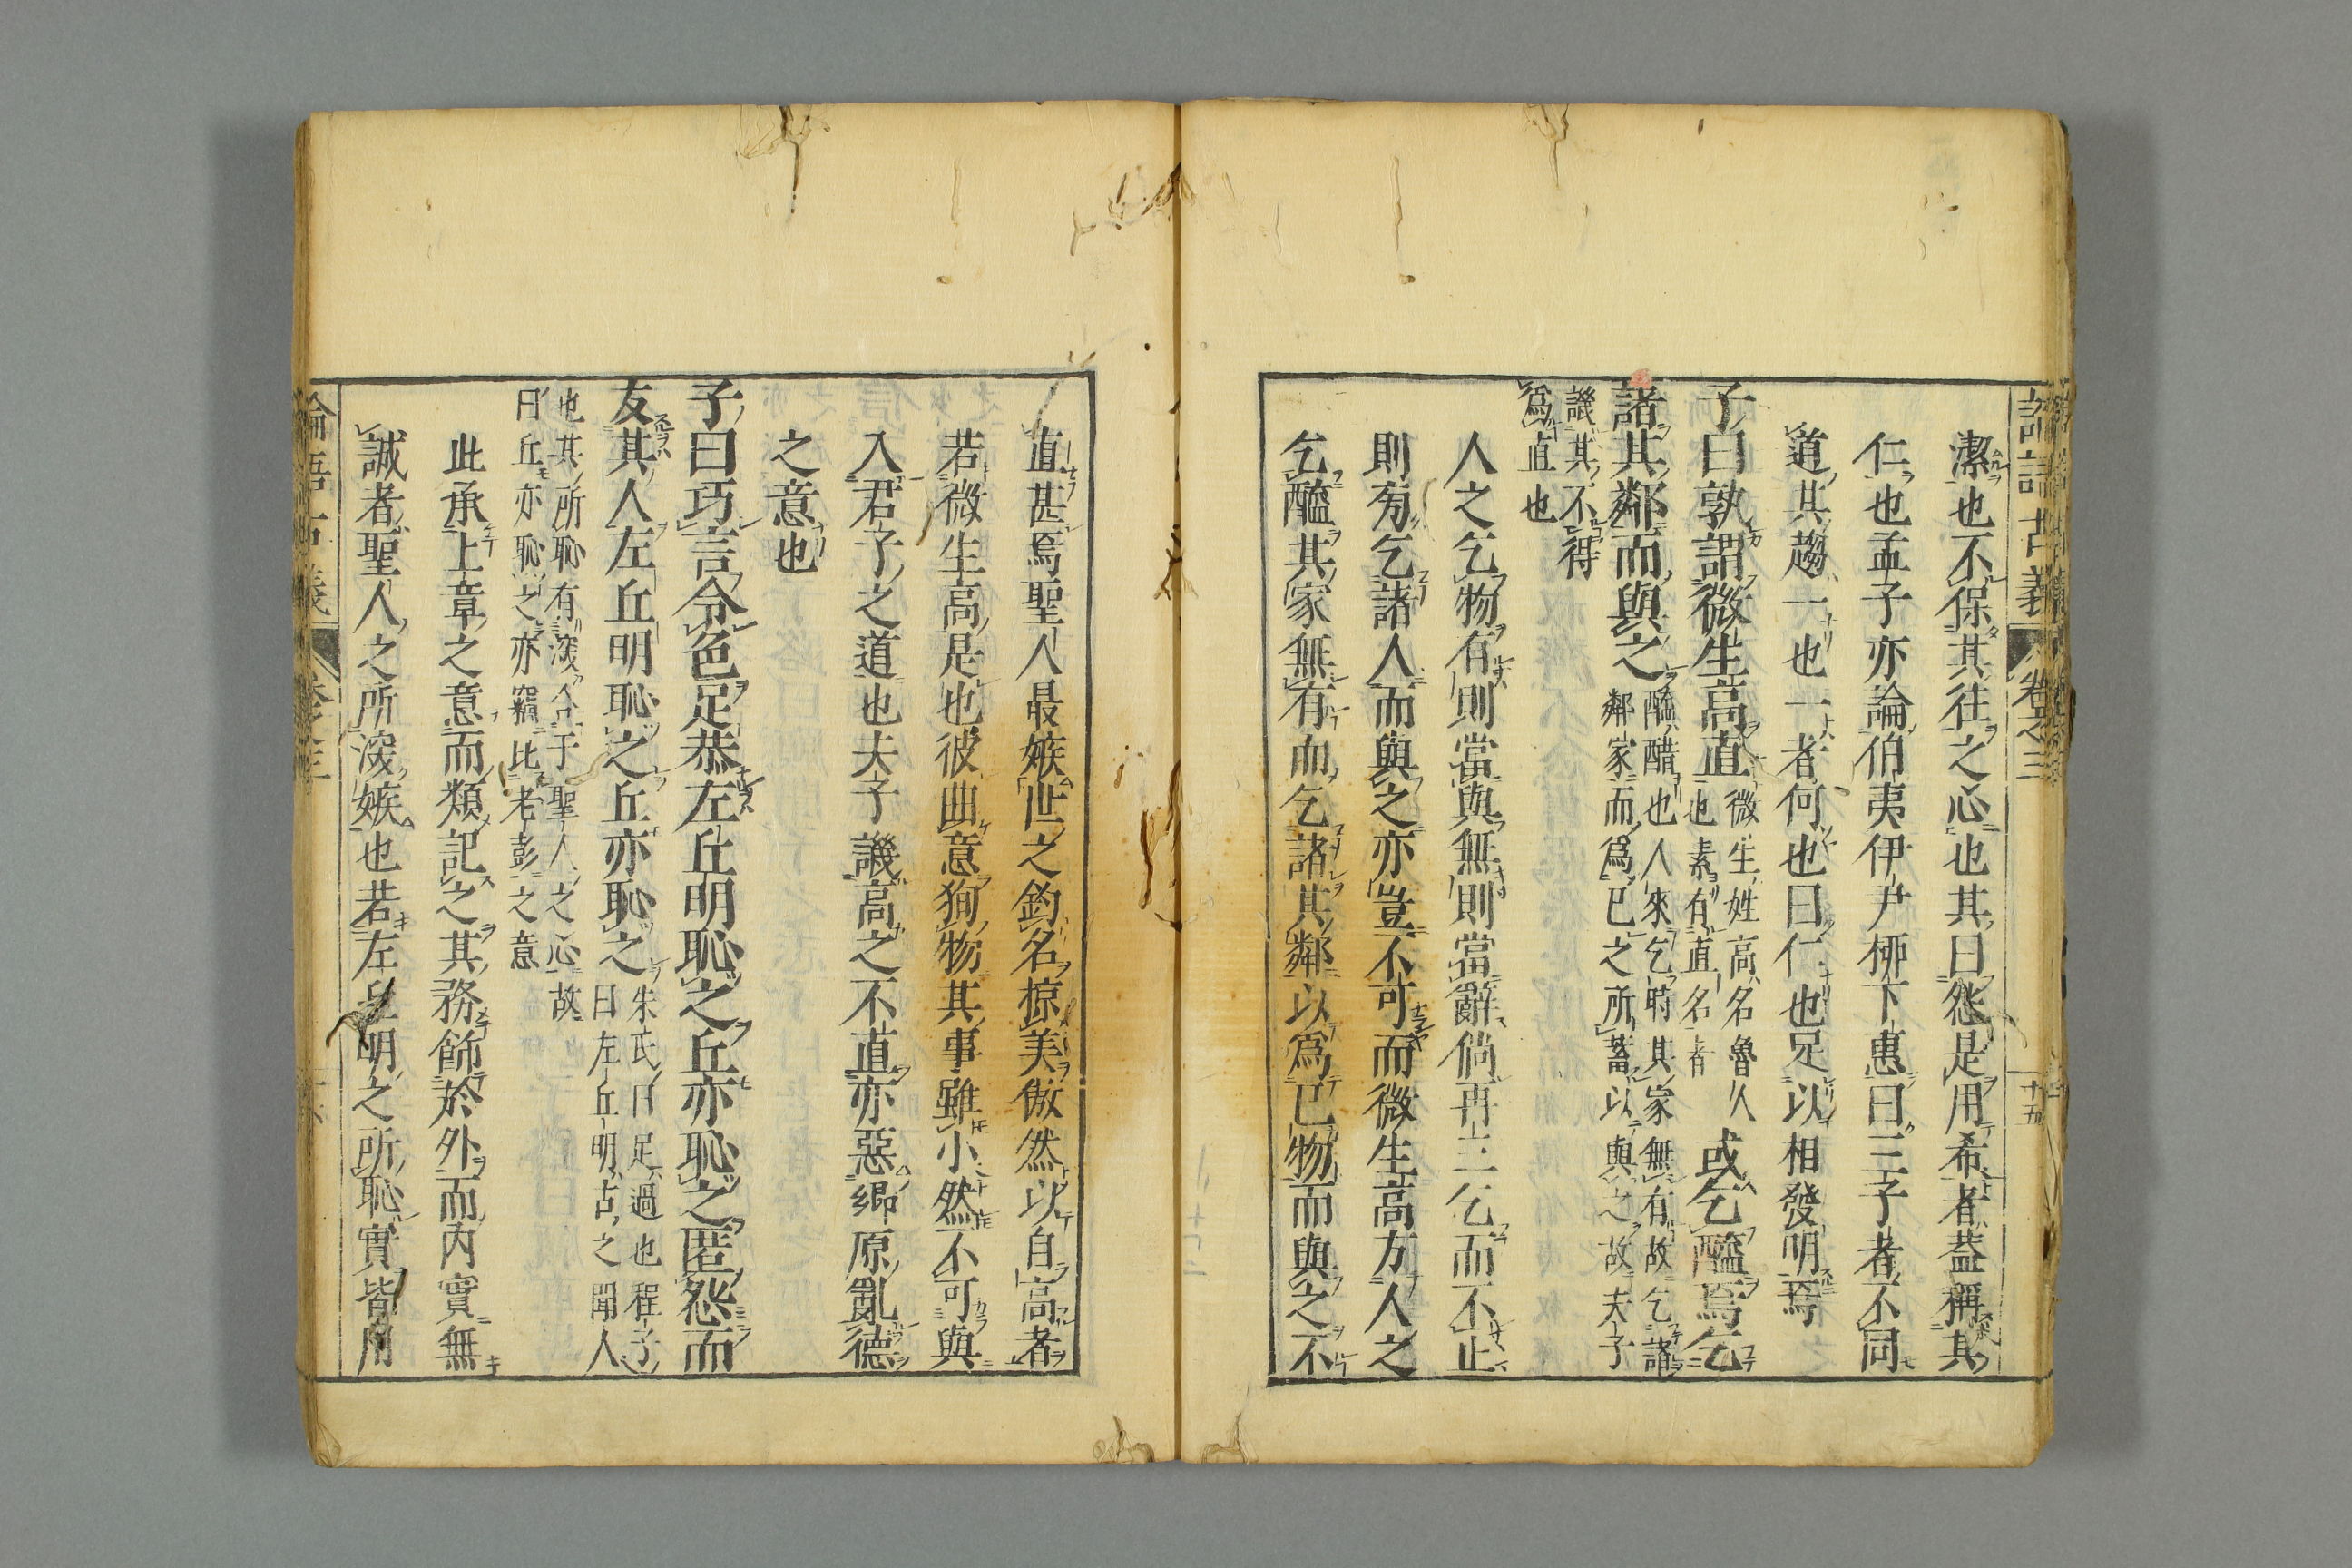 潔也不保其往之心也其曰怨是用希者蓋稱其
仁也孟子亦論伯夷伊尹柳下惠曰三子者不同
道其趨一也一者何也曰仁也足以相發明焉
子曰孰謂微生高直
微生姓高名魯人
也素有直名者
或乞醯焉乞
諸其鄰而與之
醯醋也人來乞時其家無有故乞諸
鄰家而爲己之所蓄以與之故夫子
譏其不得
爲直也
人之乞物有則當與無則當辭倘再三乞而不止
則旁乞諸人而與之亦豈不可而微生高方人之
乞醯其家無有而乞諸其鄰以爲己物而與之不
直甚焉聖人最嫉世之釣名掠美傲然以自高者
若微生高是也彼曲意狥物其事雖小然不可與
入君子之道也夫子譏高之不直亦惡鄉原亂德
之意也
子曰巧言令色足恭左丘明恥之丘亦恥之匿怨而
友其人左丘明恥之丘亦恥之
朱氏曰足過也程子
曰左丘明古之聞人
也其所恥有深合于聖人之心故
曰丘亦恥之亦竊比老彭之意
此承上章之意而類記之其務飾於外而內實無
誠者聖人之所深嫉也若左丘明之所恥實皆用
論語古義
卷之三
十五